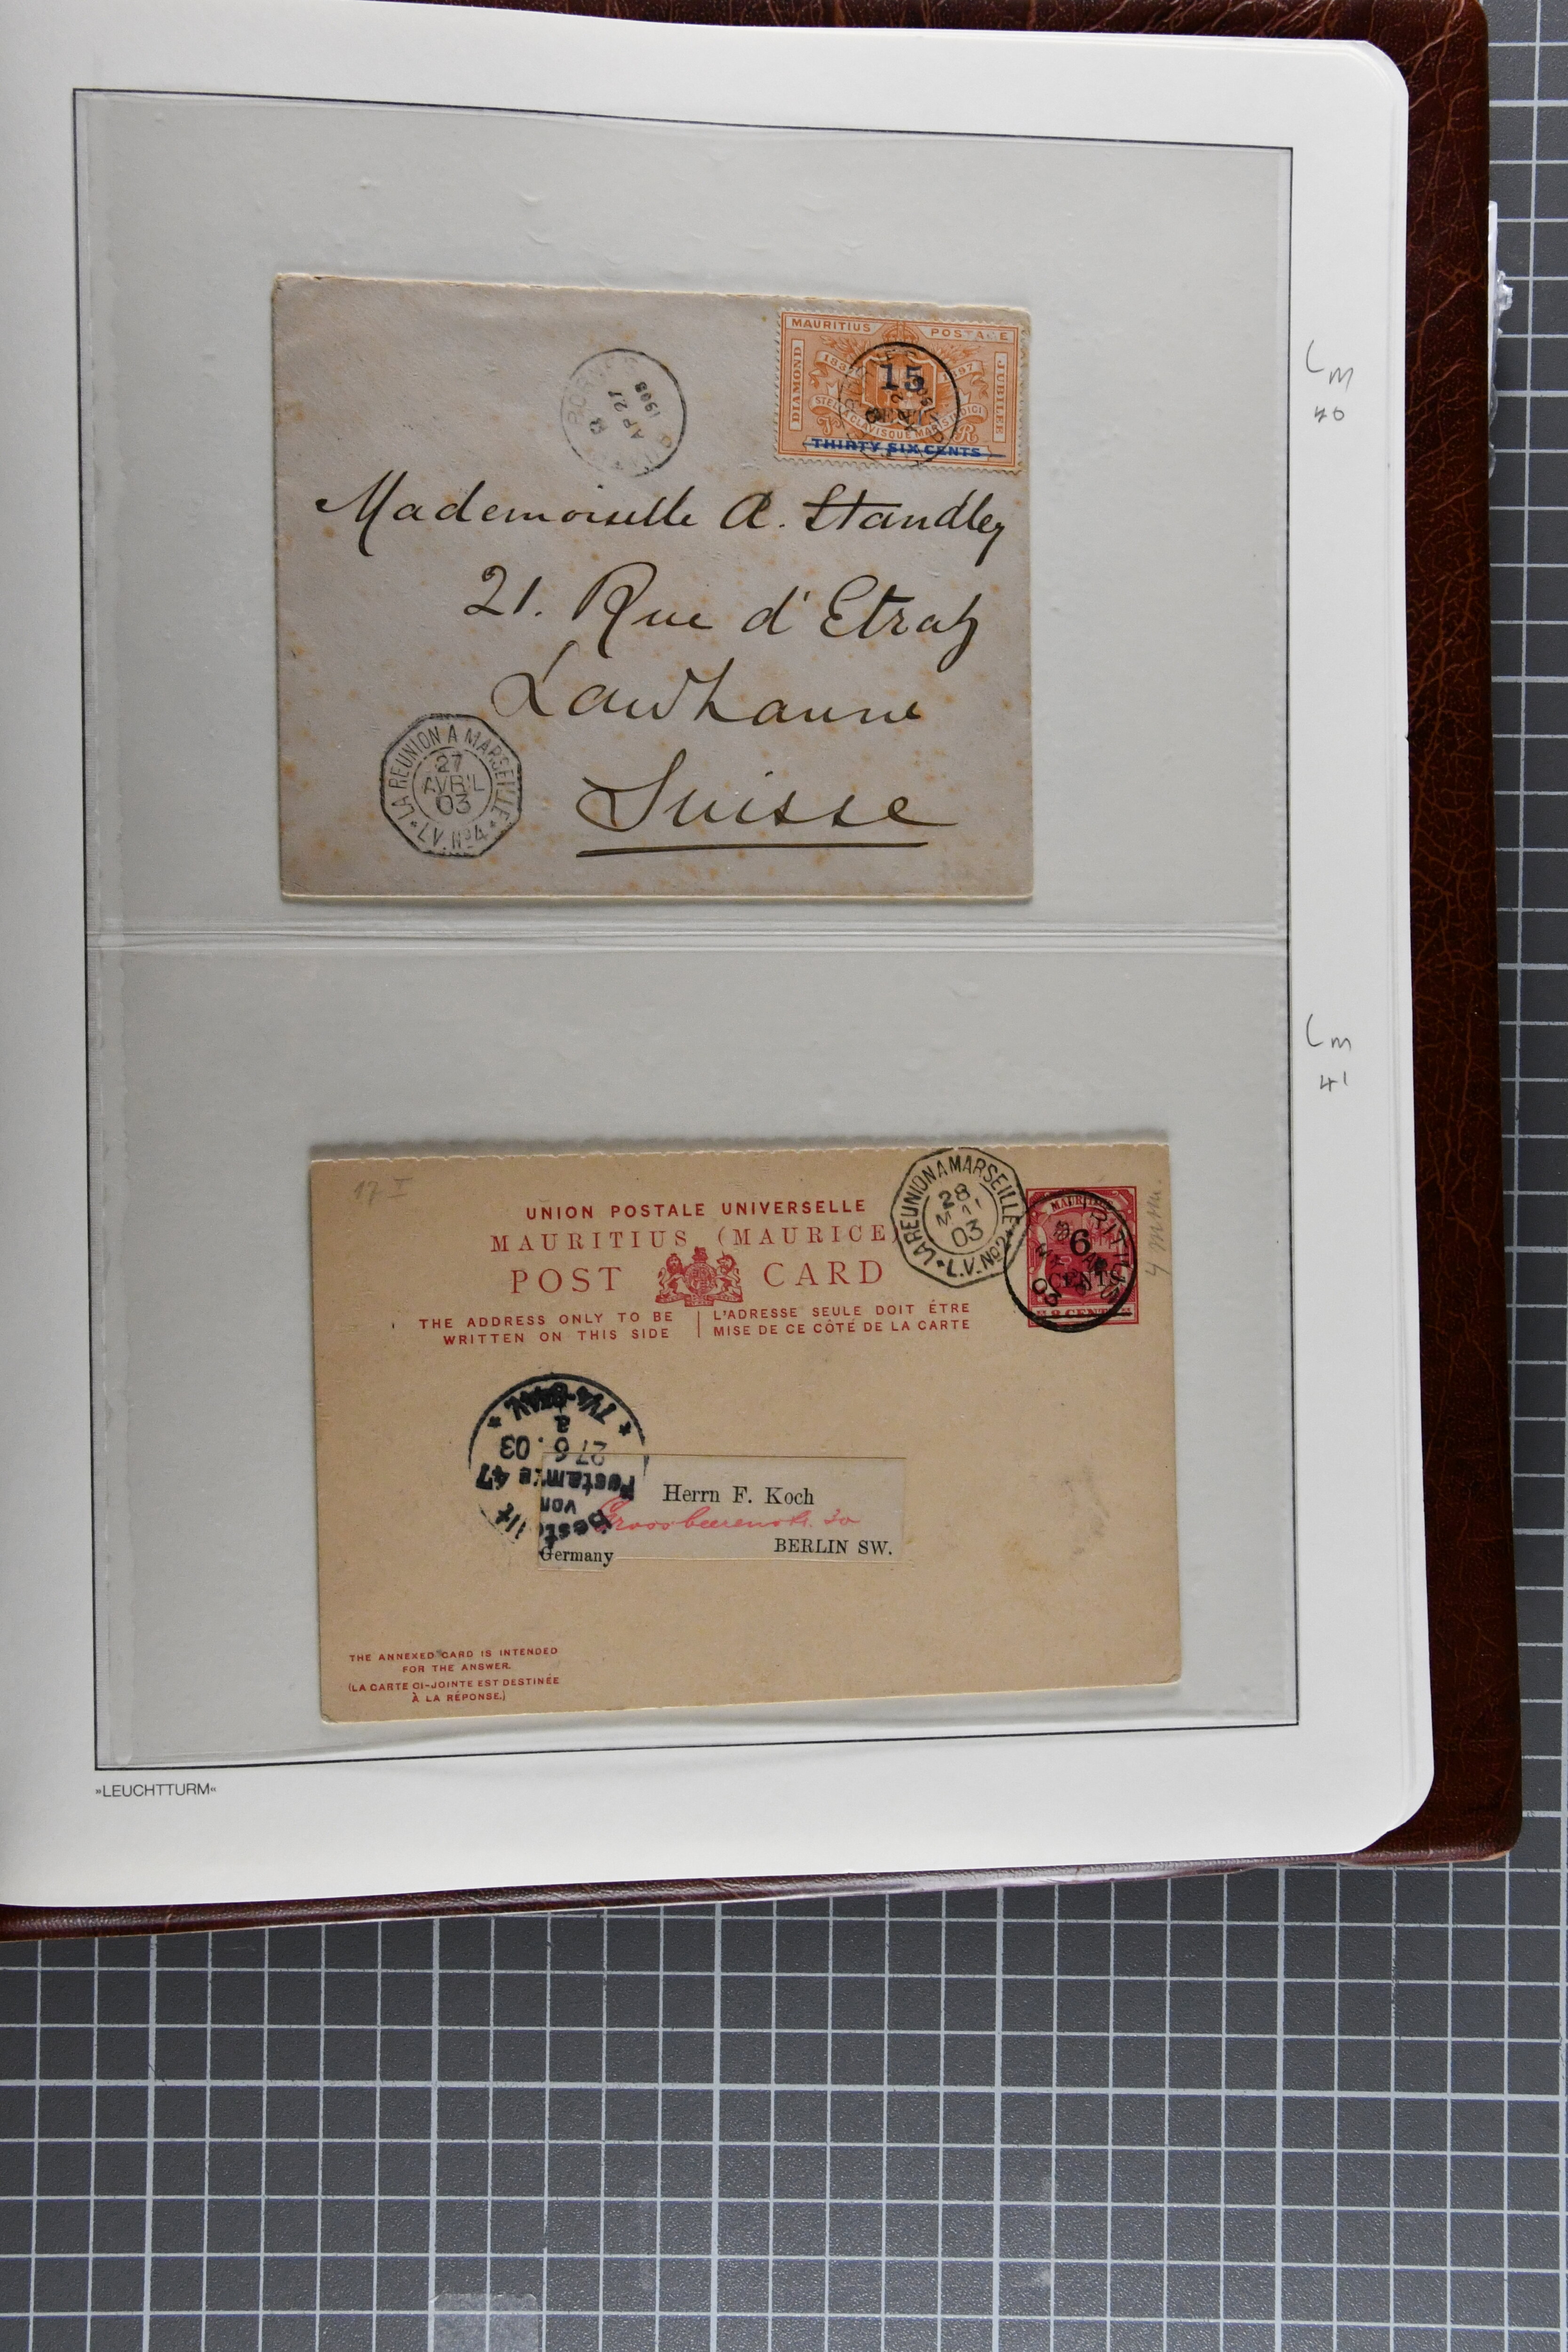 MAURITIUS POSTAGE
DIAMOND
JUBILEE
1897
15
STELLA CLAVISQUE MARIS INDICI
THIRTY SIX CENTS
AP 27
Mademoiselle A. Standley
21. Rue d'Etraz
Lausanne
Suisse
LA REUNION A MARSEILLE
27
AVRIL
03
L.V. No4
Cm
40
17 I
UNION POSTALE UNIVERSELLE
MAURITIUS (MAURICE)
POST CARD
THE ADDRESS ONLY TO BE
WRITTEN ON THIS SIDE
L'ADRESSE SEULE DOIT ÊTRE
MISE DE CE CÔTÉ DE LA CARTE
LA REUNION A MARSEILLE
28
MAI
03
L.V. No2
MAURITIUS
6
CENTS
4 mm.
Cm
41
Bestellt
vom
Postamte 47
27 6. 03
a
Herrn F. Koch
Grossbeerenstr. 30
Germany
BERLIN SW.
THE ANNEXED CARD IS INTENDED
FOR THE ANSWER.
(LA CARTE CI-JOINTE EST DESTINÉE
À LA RÉPONSE.)
»LEUCHTTURM«